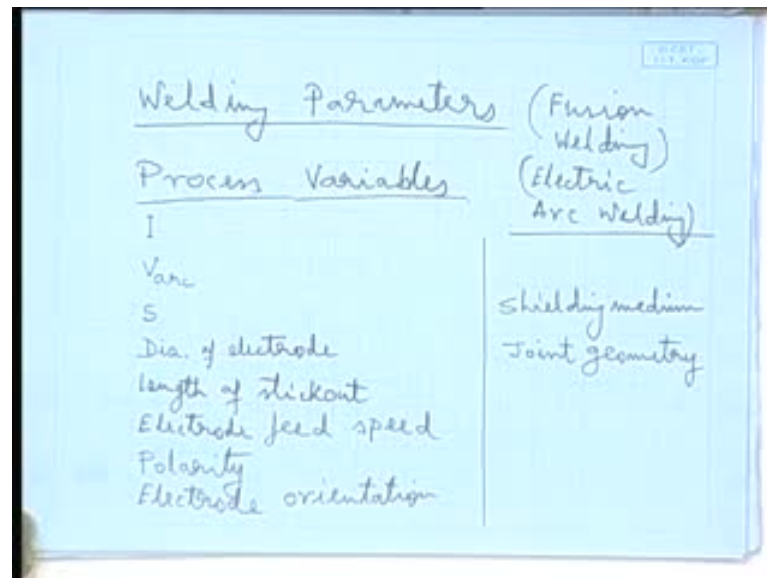 Welding Parameters (Fusion
Welding)
Process Variables (Electric
Arc Welding)
I
Varc
S
Dia. of electrode
length of stickout
Electrode feed speed
Polarity
Electrode orientation
Shielding medium
Joint geometry